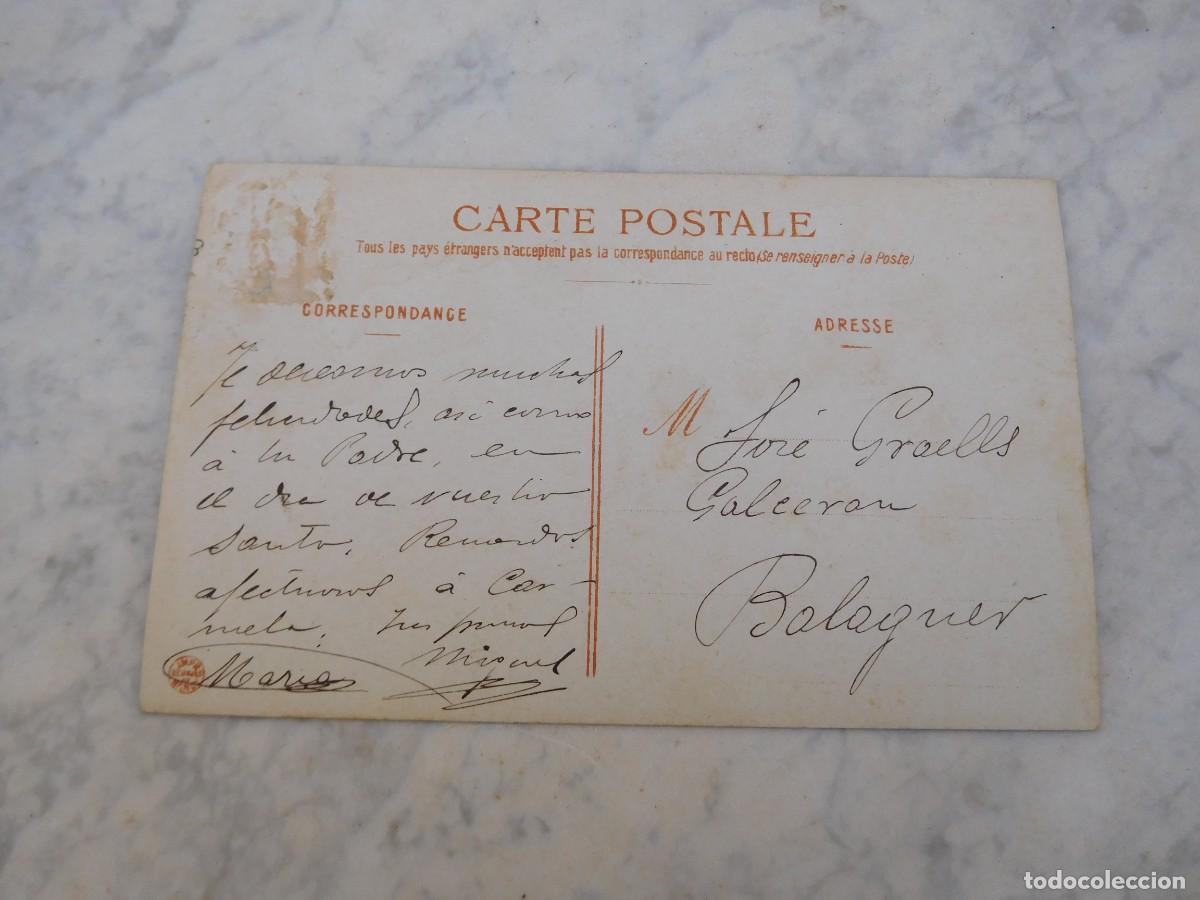 CARTE POSTALE
Tous les pays étrangers n'acceptent pas la correspondance au recto (Se renseigner à la Poste)
CORRESPONDANCE
ADRESSE
Te deseamos muchas
felicidades, asi como
á tu Padre, en
el dia de vuestro
santo. Recuerdos
afectuosos á Car-
mela. Tus primos
Miguel
Maria
M José Graells
Galceran
Balaguer
todocoleccion